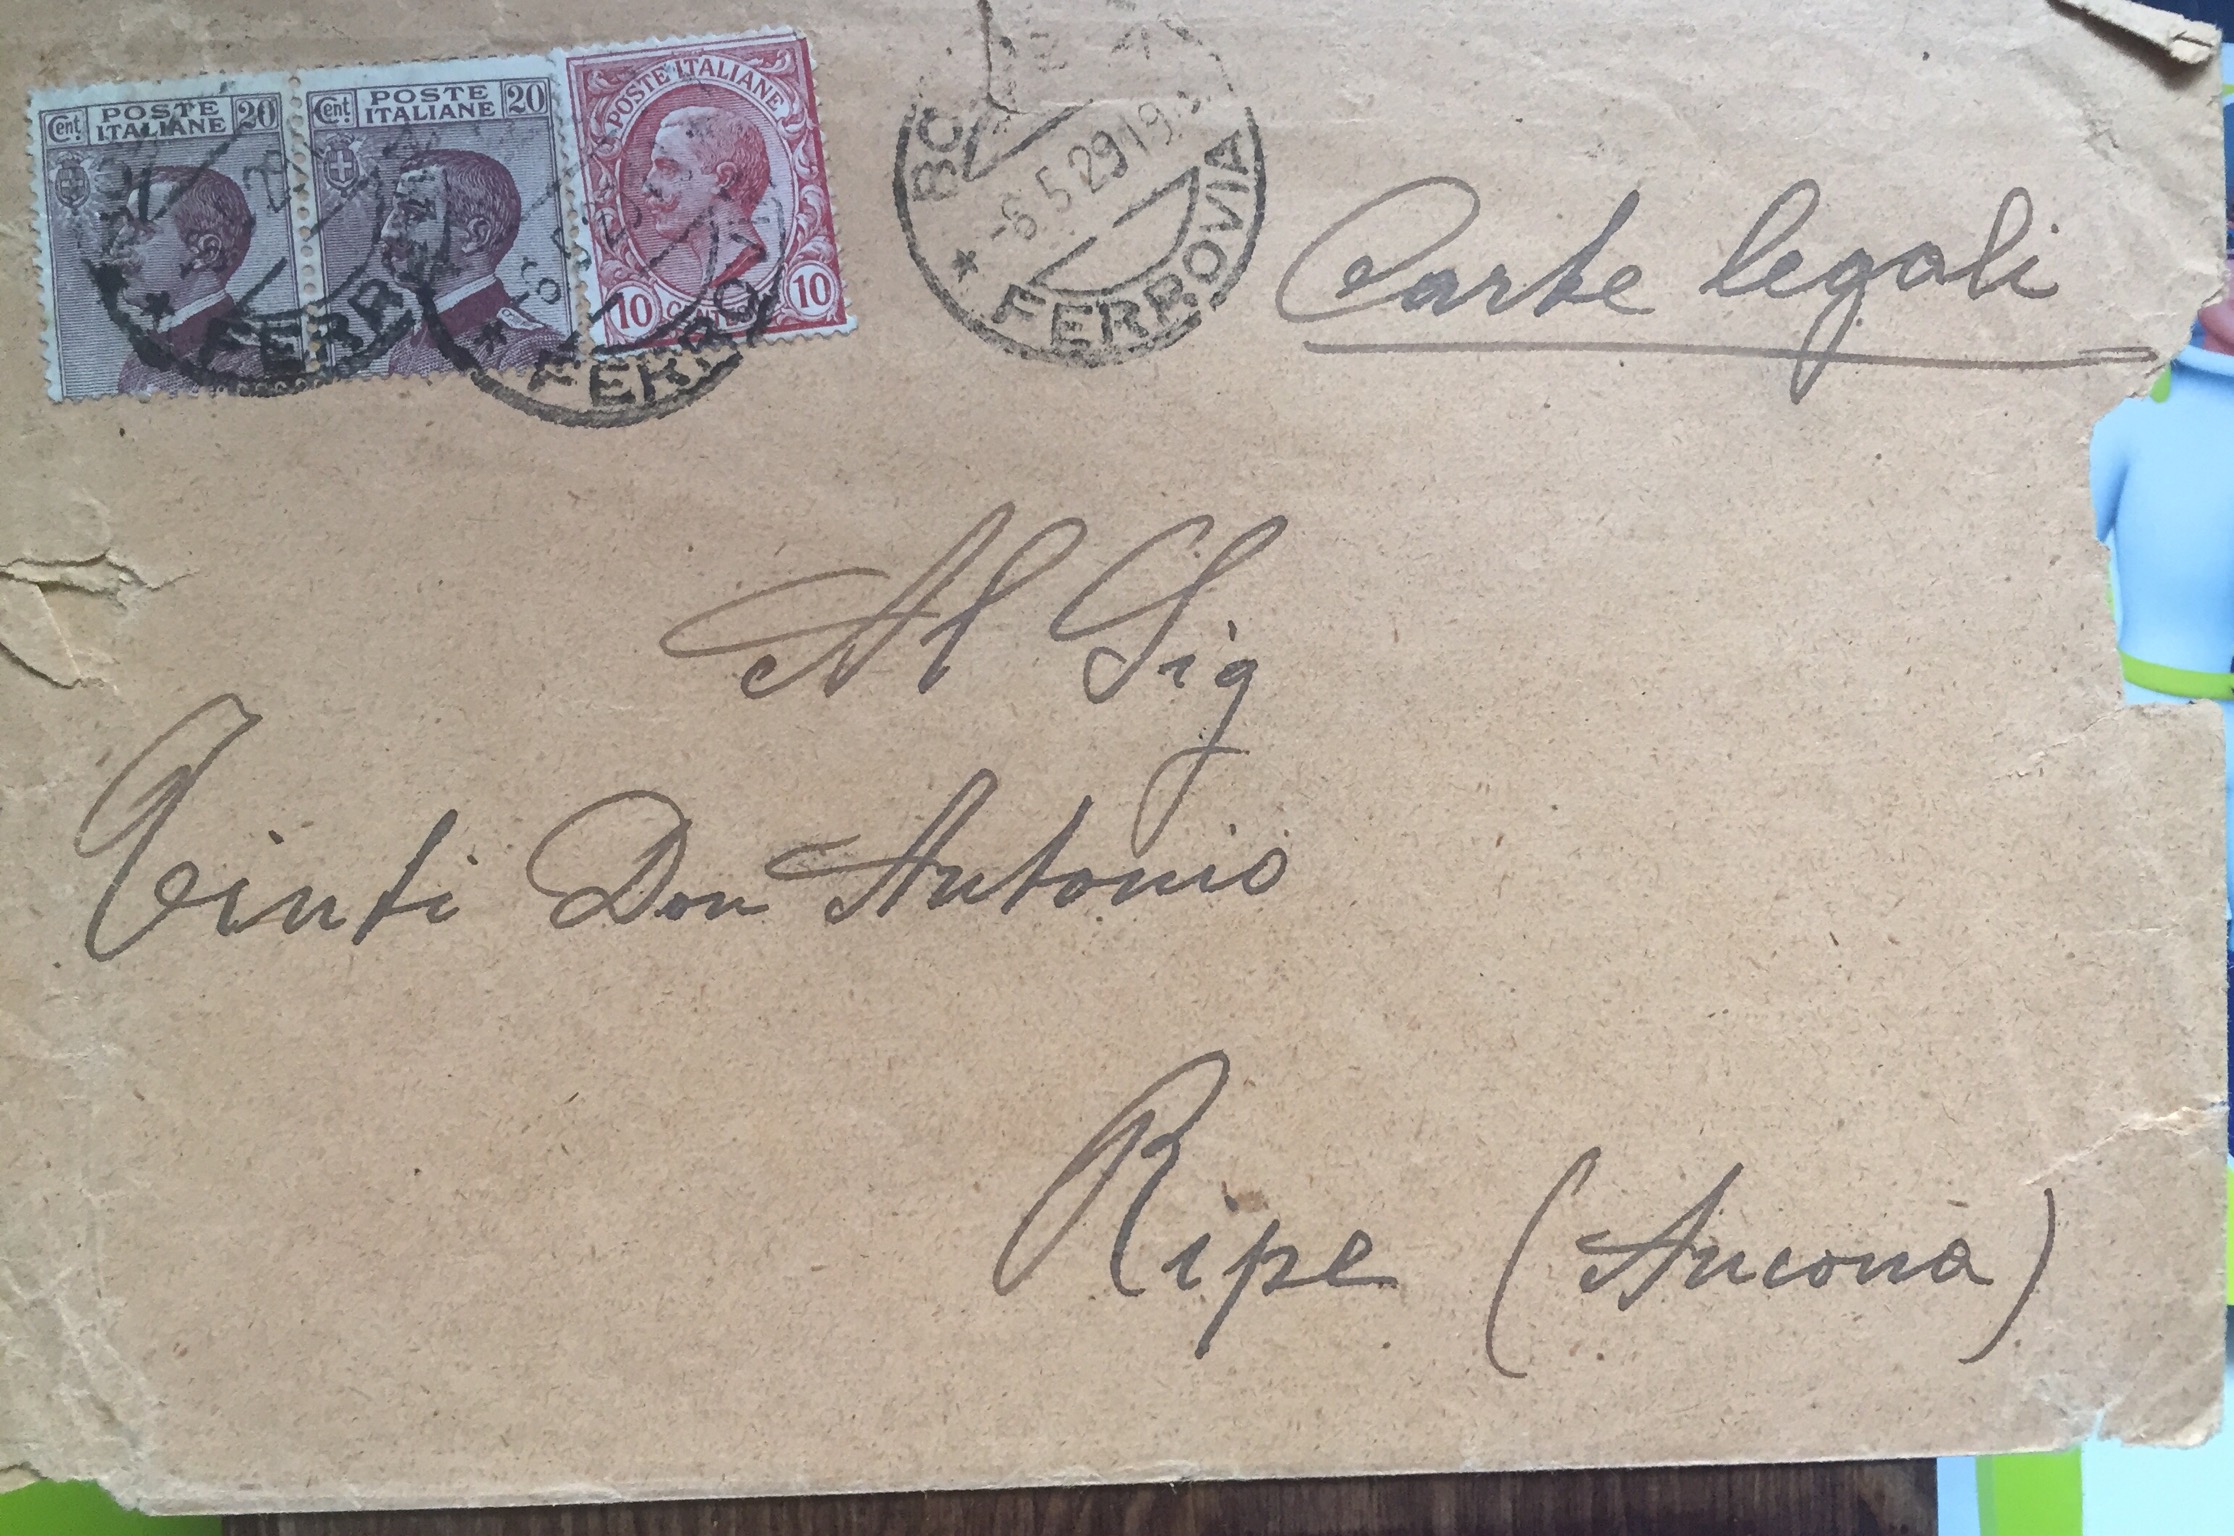 Cent. POSTE ITALIANE 20
Cent. POSTE ITALIANE 20
POSTE ITALIANE
10 10
-6.5.29 19
FERROVIA
FERR
FERRO
Carte legali
Al Sig
Tinti Don Antonio
Ripe (Ancona)